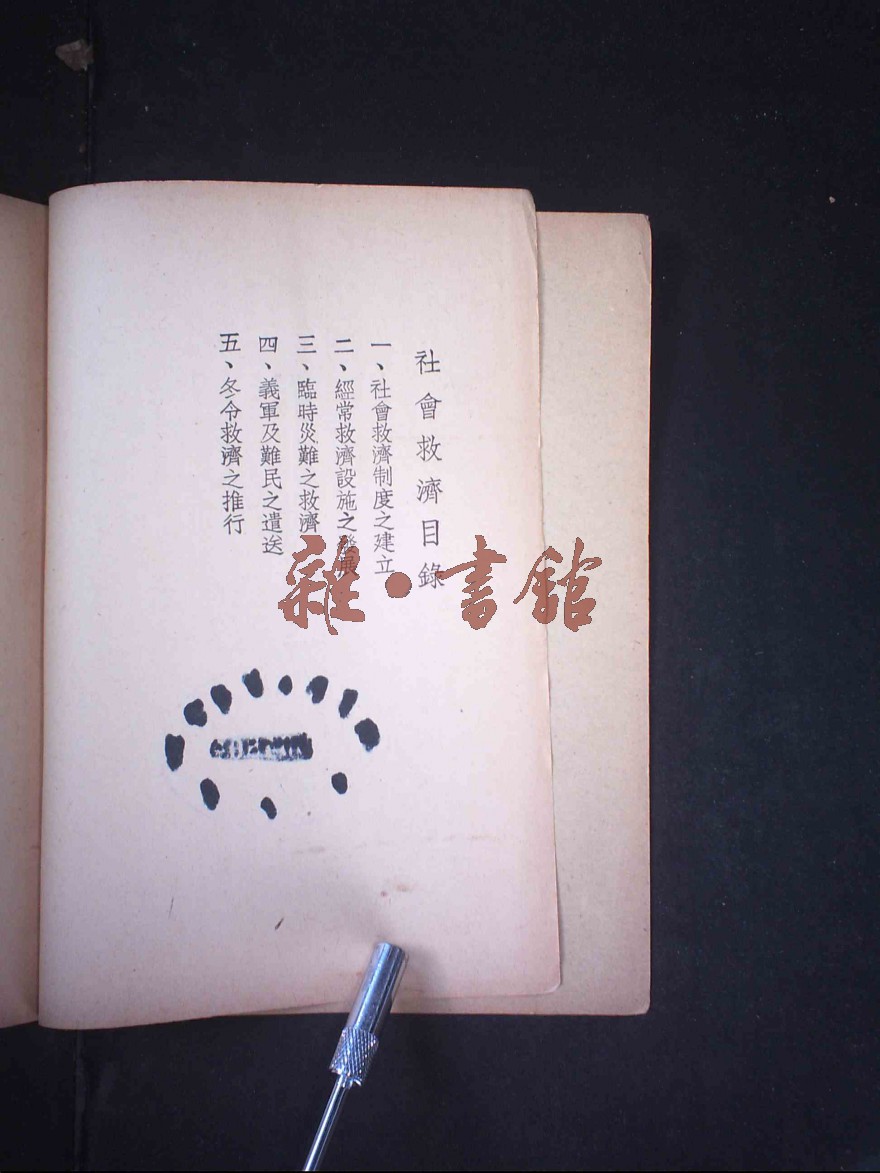 社會救濟目錄
一、社會救濟制度之建立
二、經常救濟設施之發展
三、臨時災難之救濟
四、義軍及難民之遣送
五、冬令救濟之推行
雜·書館